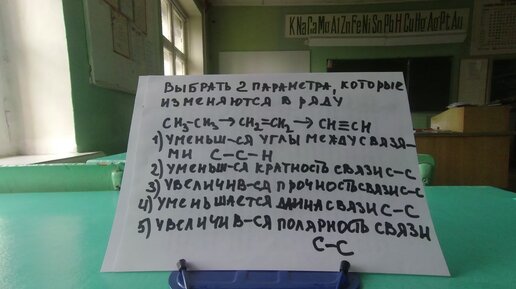 K Na Ca Mg Al Zn Fe Ni Sn Pb H Cu Hg Ag Pt Au
ВЫБРАТЬ 2 ПАРАМЕТРА, КОТОРЫЕ
ИЗМЕНЯЮТСЯ В РЯДУ
CH₃-CH₃→CH₂=CH₂→CH≡CH
1) УМЕНЬШ-СЯ УГЛЫ МЕЖДУ СВЯЗЯ-
МИ C-C-H
2) УМЕНЬШ-СЯ КРАТНОСТЬ СВЯЗИ C-C
3) УВЕЛИЧИВ-СЯ ПРОЧНОСТЬ СВЯЗИ C-C
4) УМЕНЬШАЕТСЯ ДЛИНА СВЯЗИ C-C
5) УВЕЛИЧИВ-СЯ ПОЛЯРНОСТЬ СВЯЗИ
C-C